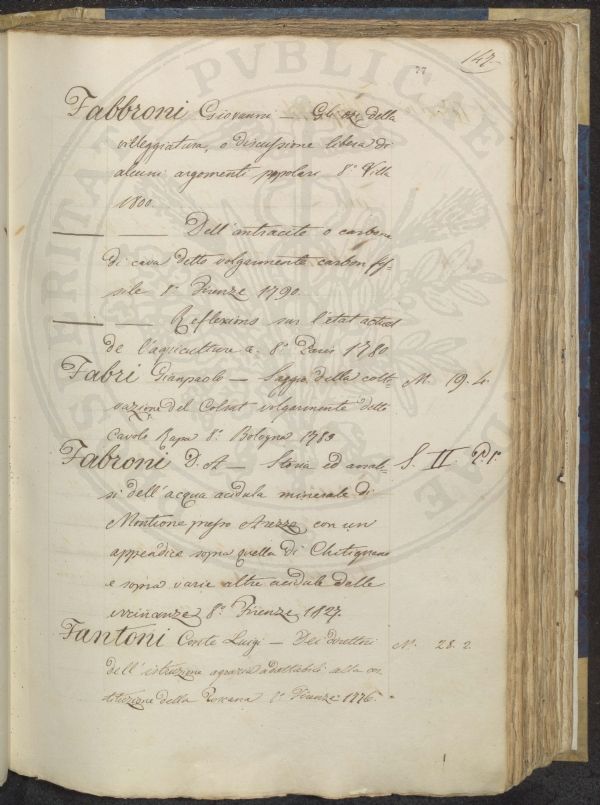 147
77
Fabbroni Giovanni — Gli ozj della
villeggiatura, o discussione libera di
alcuni argomenti popolari 8.° Villa
1800
Dell'antracite o carbone
di cava detto volgarmente carbon fos-
sile 8.° Firenze 1790
Reflexions sur l'etat actuel
de l'agriculture 8.° Paris 1780
Fabri Gianpaolo — Saggio della colti- M. 19. 4.
vazione del Colsat volgarmente detto
Cavolo Rapa 8.° Bologna 1783
Fabroni D. A — Storia ed anali- S. II
si dell'acqua acidula minerale di
Montione presso Arezzo, con un
appendice sopra quella di Chitignano
e sopra varie altre acidule delle
vicinanze 8.° Firenze 1827.
Fantoni Conte Luigi — Dei
dell'istruzione agraria adottabili alla co-
stituzione della Toscana 8.° Firenze 1776.
M. 28. 2.
PVBLICAE